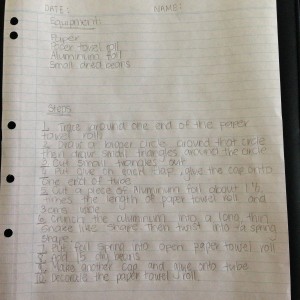 DATE: NAME:
Equipment:
Paper
Paper towel roll
Aluminium foil
Small dried beans
Steps
1. Trace around one end of the paper
towel roll
2. Draw a bigger circle around that circle
then draw small triangles around the circle
3. Cut small triangles out
4. Put glue on each flap, glue the cap onto
one end of tube
5. Cut a piece of aluminium foil about 1½
times the length of paper towel roll and
wide
6. Crunch the aluminium into a long, thin
snake like shape. Then twist into a spring
shape
7. Put foil spring into open paper towel roll
8. Add dry beans
9. Make another cap and glue onto tube
10. Decorate the paper towel roll